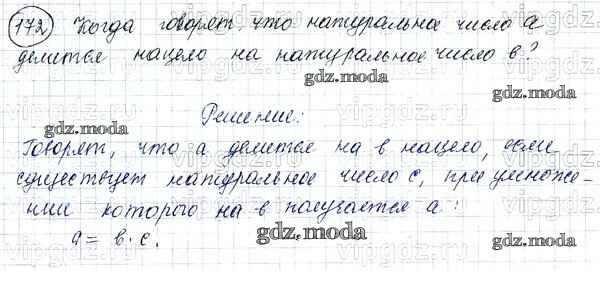 172 Когда говорят, что натуральное число а
делится нацело на натуральное число в?
gdz.moda gdz.moda
gdz.moda
Решение:
gdz.moda gdz.moda
Говорят, что а делится на в нацело, если
существует натуральное число с, при умноже-
нии которого на в получается а:
а = в·с.
gdz.moda gdz.moda gdz.moda